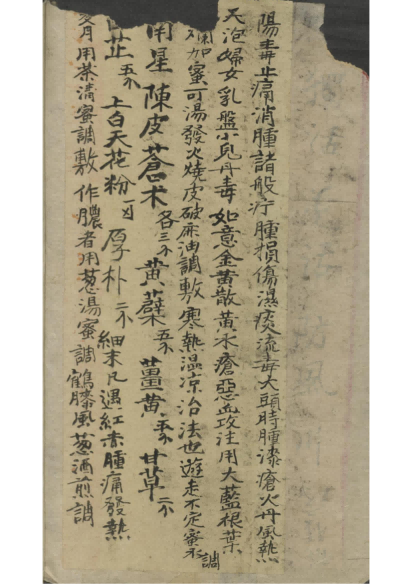 陽毒止痛消腫諸般疔腫損傷濕痰流毒大頭時腫漆瘡火丹風熱
天泡婦女乳盤小兒丹毒如意金黃散黃水瘡惡虫攻注用大藍根葉
加蜜可湯發火燒皮破麻油調敷寒熱温凉治法也遊走不定蜜水調
南星陳皮蒼术各三 黃蘗五 薑黃五 甘草二
芷五 上白天花粉 厚朴二 細末凡遇紅赤腫痛發熱
月用茶清蜜調敷作膿者用葱湯蜜調鶴膝風葱酒煎調